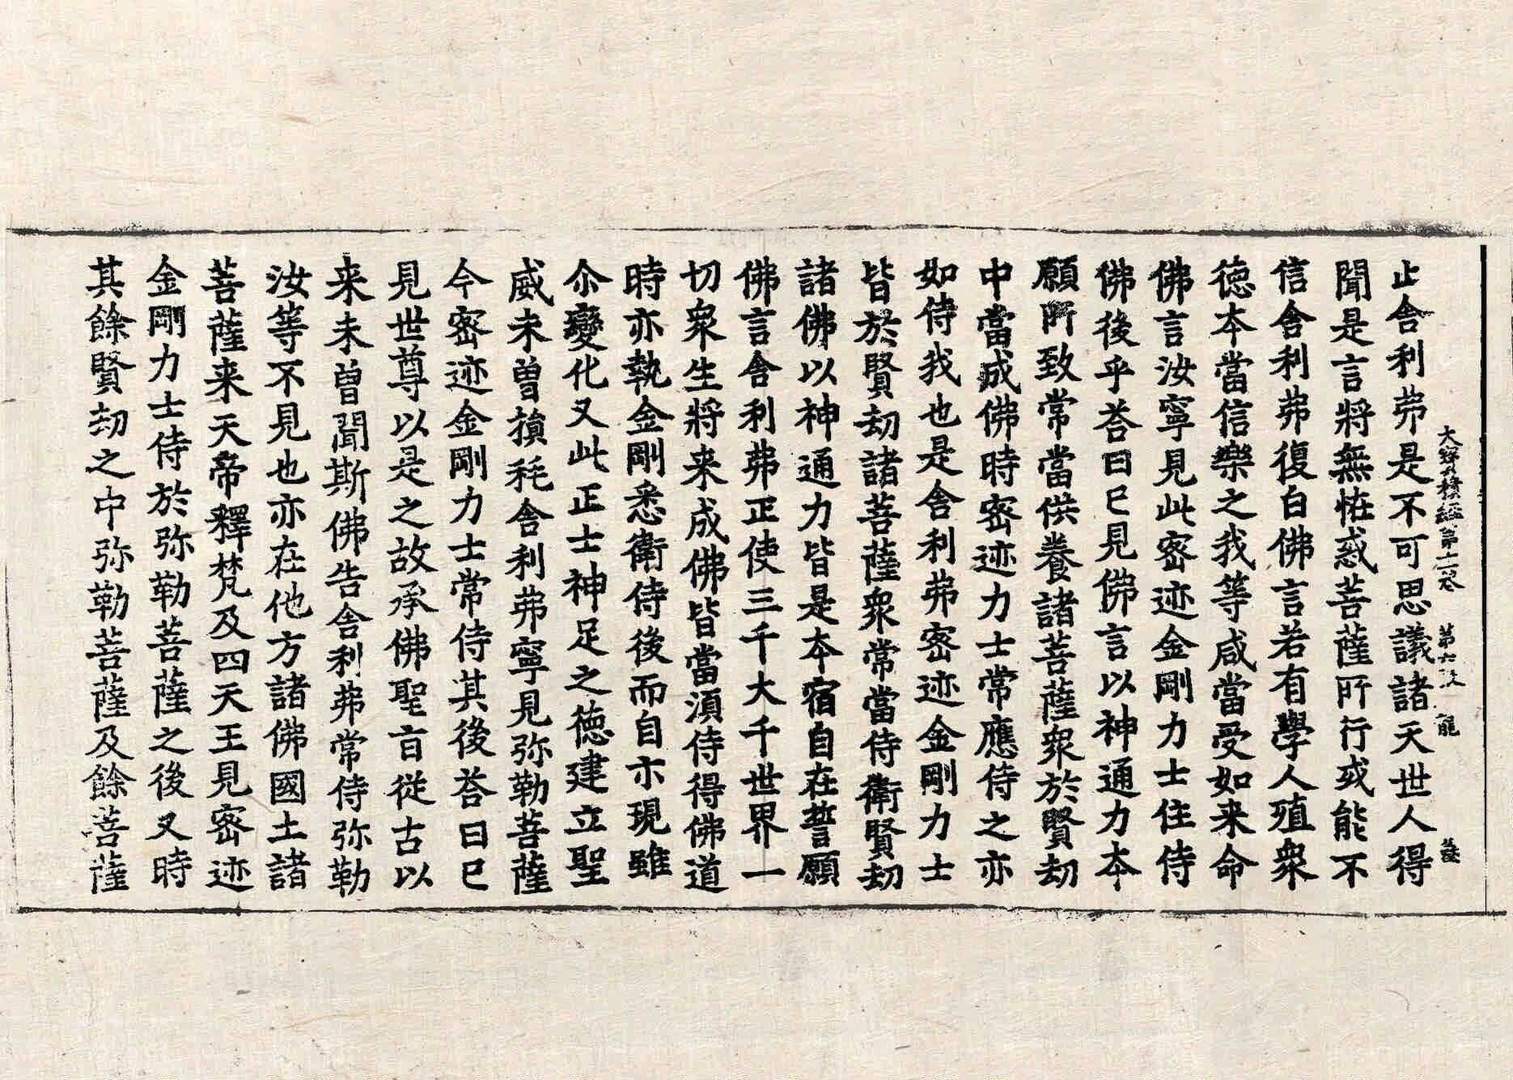 大寶積經第十二卷 第六張 龍
止舍利弗是不可思議諸天世人得
聞是言將無恠惑菩薩所行或能不
信舍利弗復白佛言若有學人殖衆
德本當信樂之我等咸當受如来命
佛言汝寧見此密迹金剛力士住侍
佛後乎荅曰已見佛言以神通力本
願所致常當供養諸菩薩衆於賢劫
中當成佛時密迹力士常應侍之亦
如侍我也是舍利弗密迹金剛力士
皆於賢劫諸菩薩衆常當侍衛賢劫
諸佛以神通力皆是本宿自在誓願
佛言舍利弗正使三千大千世界一
切衆生將来成佛皆當湏侍得佛道
時亦執金剛悉衛侍後而自示現雖
尒變化又此正士神足之德建立聖
威未曾損秏舍利弗寧見弥勒菩薩
今密迹金剛力士常侍其後荅曰已
見世尊以是之故承佛聖旨従古以
来未曾聞斯佛告舍利弗常侍弥勒
汝等不見也亦在他方諸佛國土諸
菩薩来天帝釋梵及四天王見密迹
金剛力士侍於弥勒菩薩之後又時
其餘賢劫之中弥勒菩薩及餘菩薩